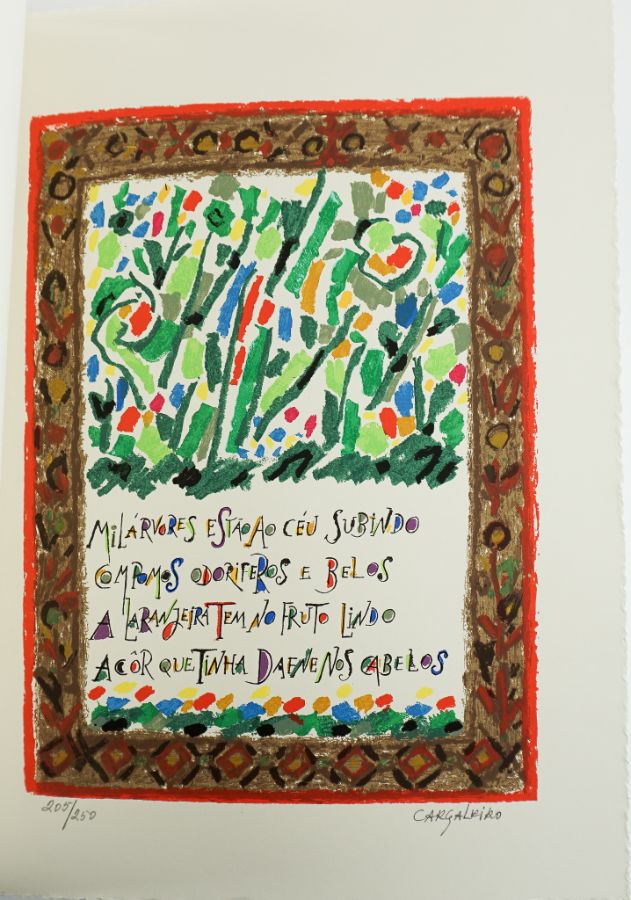 MIL ÁRVORES ESTÃO AO CÉU SUBINDO
COM POMOS ODORIFEROS E BELOS
A LARANJEIRA TEM NO FRUTO LINDO
A CÔR QUE TINHA DAFNE NOS CABELOS
205/250
CARGALEIRO